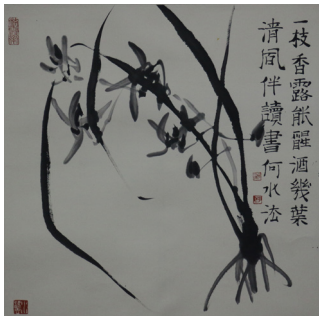 一枝香露能醒酒幾葉
清風伴讀書何水法